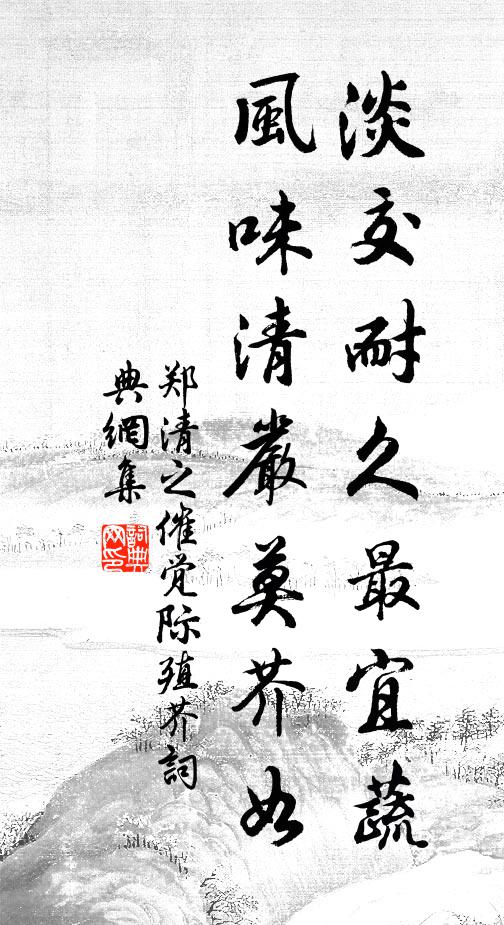 淡交耐久最宜蔬
風味清嚴莫芥如
郑清之催觉际殖芥詞
典網集
詞典
网印